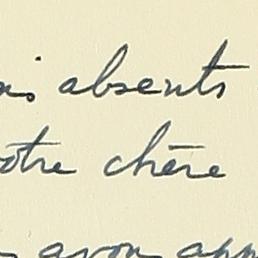 absents
otre chère
avon app